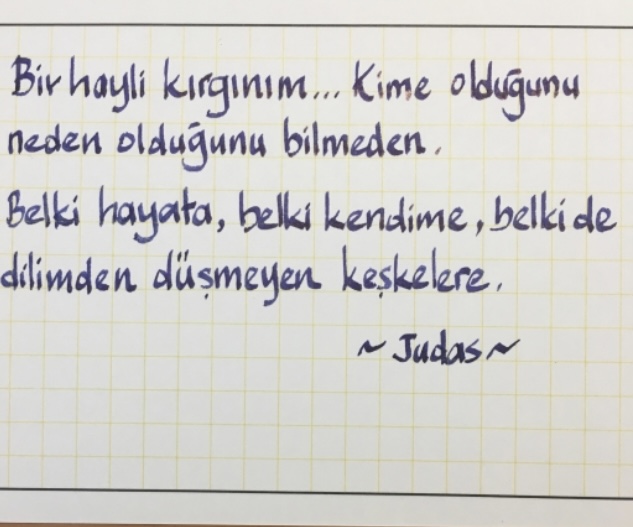 Bir hayli kırgınım... Kime olduğunu
neden olduğunu bilmeden.
Belki hayata, belki kendime, belki de
dilimden düşmeyen keşkelere.
~Judas~